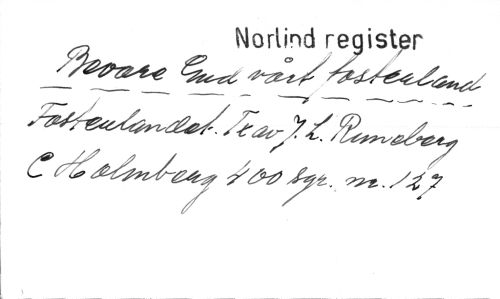 Norlind register
Bevare Gud vårt fosterland
Fosterlandet. Tx av J. L. Runeberg
C Holmberg 400 sgr. nr. 127